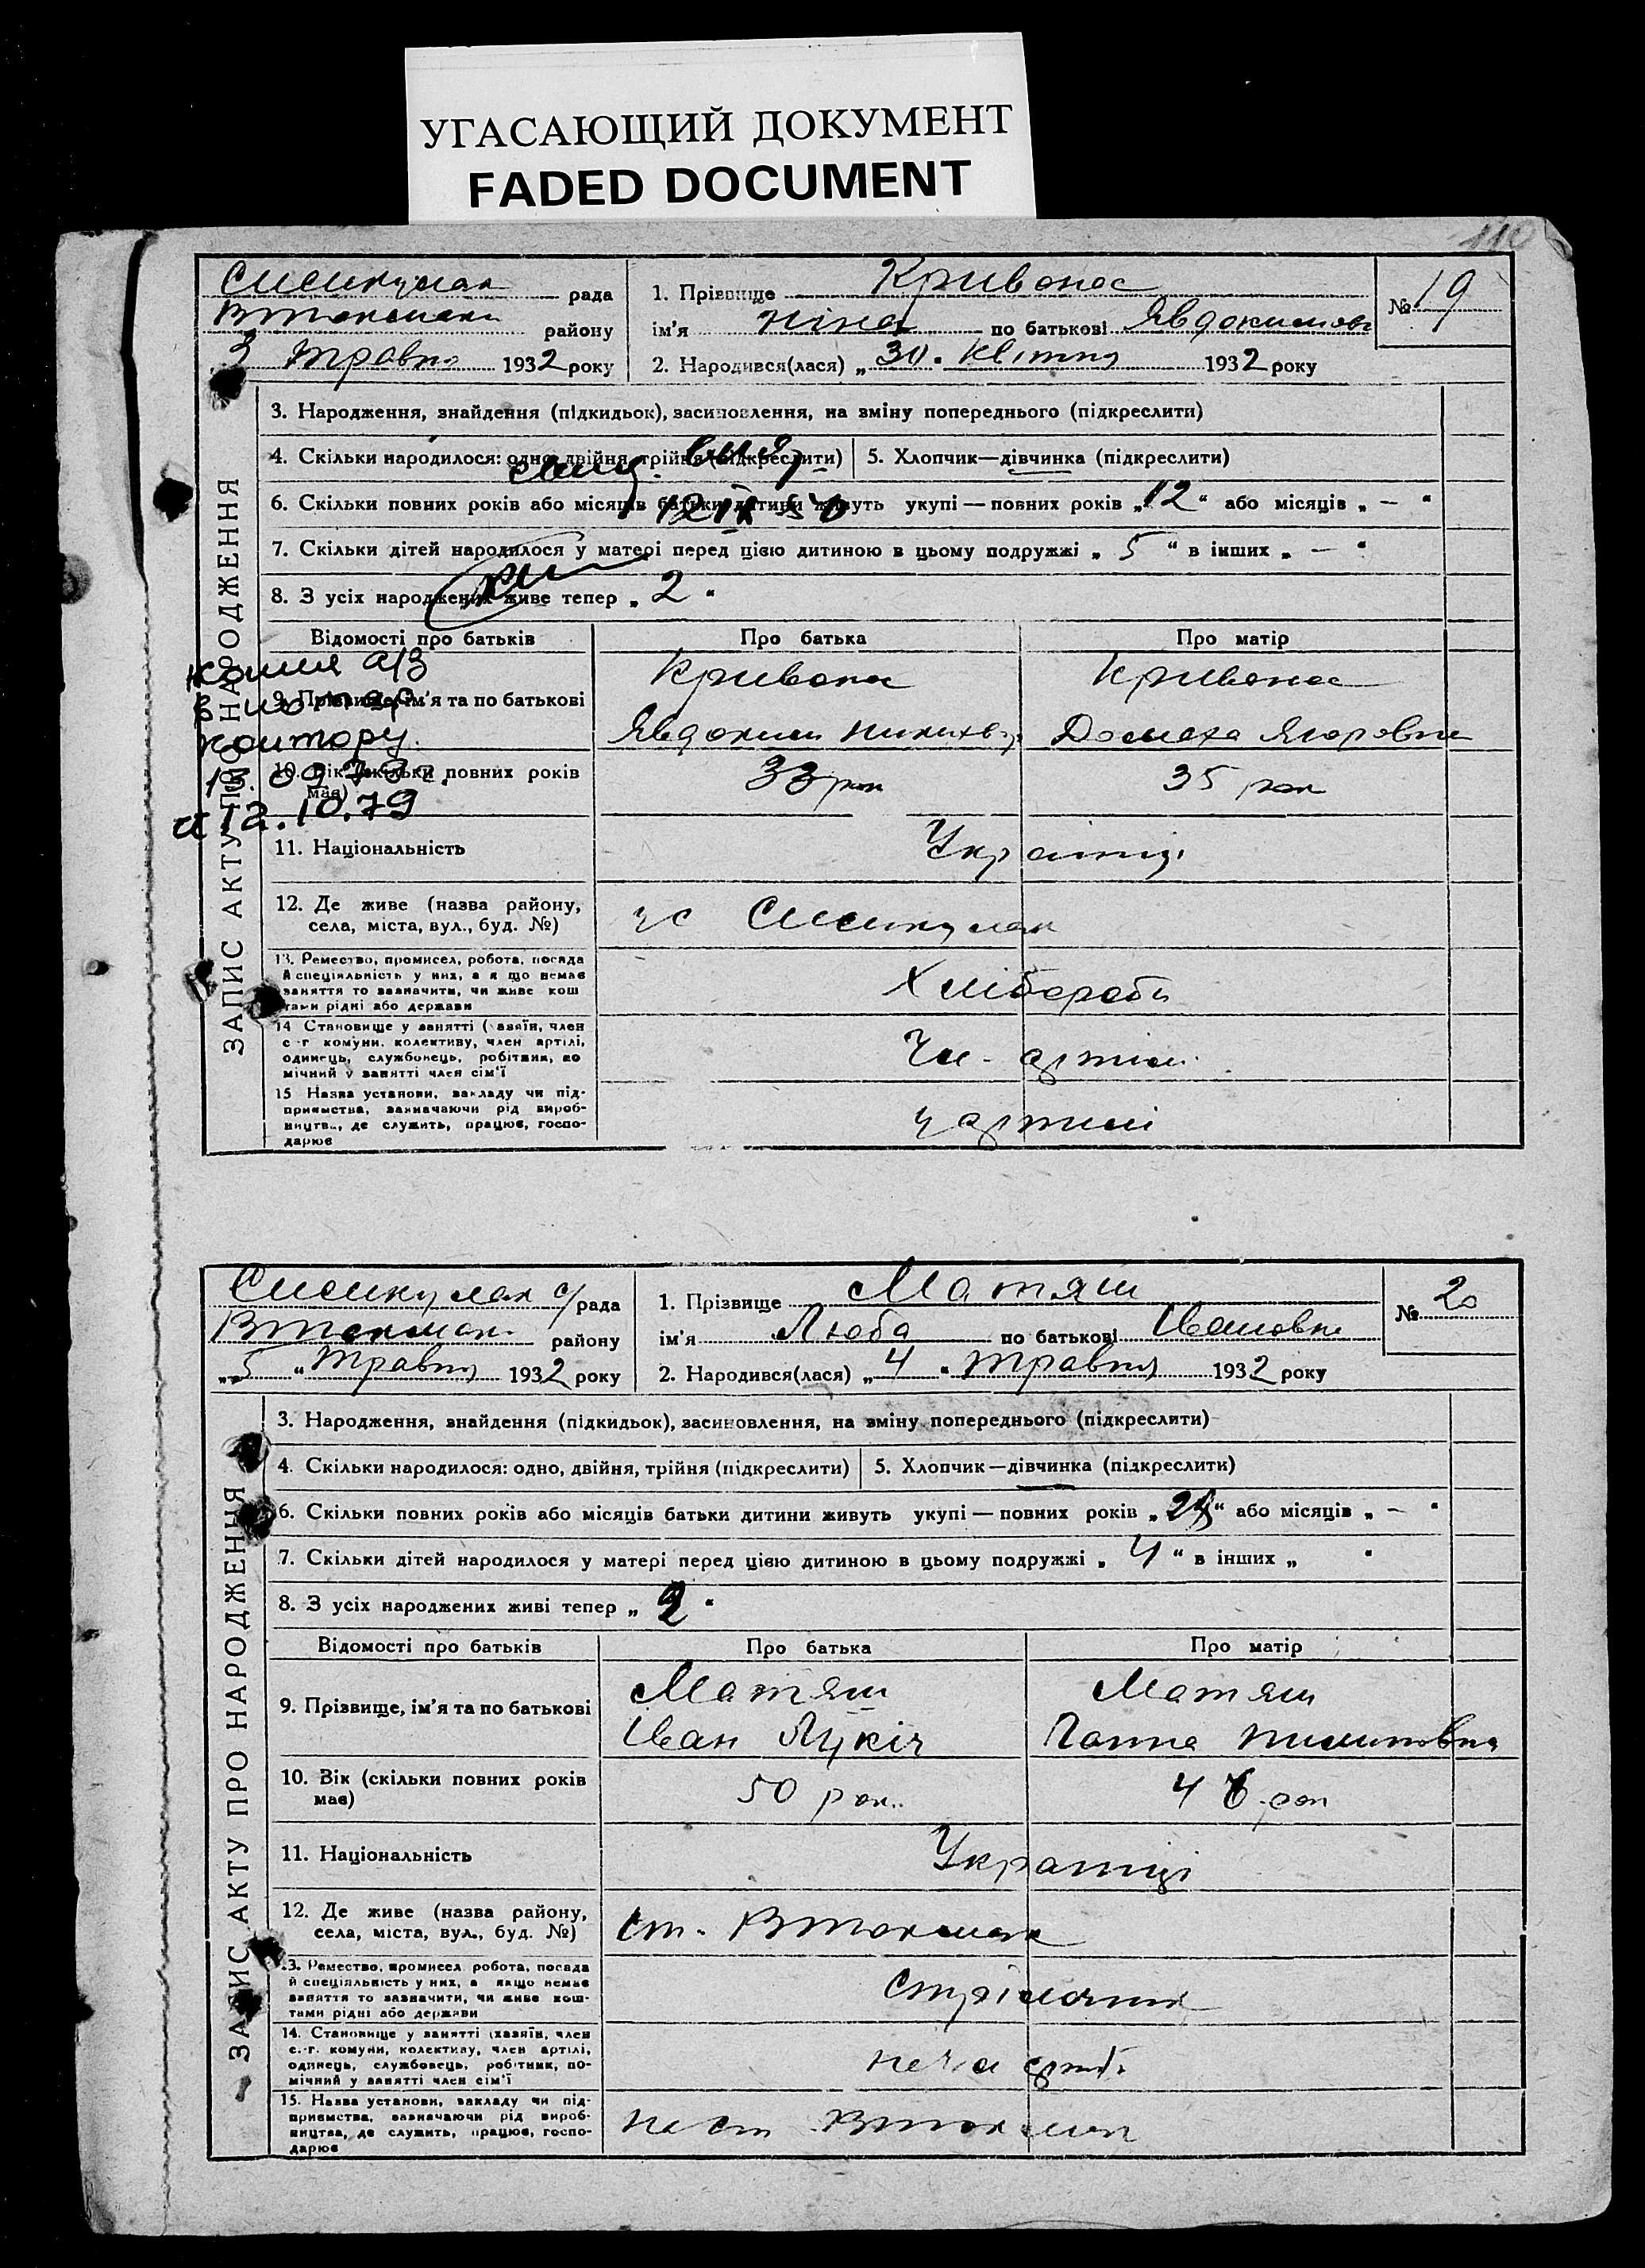 УГАСАЮЩИЙ ДОКУМЕНТ
FADED DOCUMENT
110
Сисикулак рада
Втокмаки району
3 травня 1932 року
1. Прізвище Кривонос
ім'я Ніна по батькові Явдокимовн
2. Народився(лася) „30" Квітня 1932 року
№ 19
ЗАПИС АКТУ ПРО НАРОДЖЕННЯ
3. Народження, знайдення (підкидьок), засиновлення, на зміну попереднього (підкреслити)
4. Скільки народилося: одно, двійня, трійня (підкреслити)
5. Хлопчик—дівчинка (підкреслити)
6. Скільки повних років або місяців батьки дитини живуть укупі — повних років „12" або місяців „—"
7. Скільки дітей народилося у матері перед цією дитиною в цьому подружжі „5" в інших „—"
8. З усіх народжених живе тепер „2"
Відомості про батьків Про батька Про матір
9. Прізвище, ім'я та по батькові
Кривонос
Явдоким
Кривонос
Домаха Ягоровна
копия а/з
в нотар
контору.
и 12.10.79
10. Вік (скільки повних років має)
33 рок
35 рок
11. Національність
Українці
12. Де живе (назва району,
села, міста, вул., буд. №)
ус Сисикулак
13. Ремество, промисел, робота, посада
й спеціяльність у них, а я що немає
заняття то зазначити, чи живе кош
тами рідні або держави
Хлібороби
14 Становище у занятті (хазяїн, член
с -г комуни, колективу, член артілі,
одинець, службовець, робітник, по
мічний у занятті член сім'ї
Чл. артіли
15 Назва установи, закладу чи під-
приємства, зазначаючи рід вироб-
ництва, де служить, працює, госпо-
дарює
у артилі
Сисикулак с/рада
Втокмак. району
„5" травня 1932 року
1. Прізвище Матяш
ім'я Люба по батькові Івановна
2. Народився(лася) „4" травня 1932 року
№ 20
ЗАПИС АКТУ ПРО НАРОДЖЕННЯ
3. Народження, знайдення (підкидьок), засиновлення, на зміну попереднього (підкреслити)
4. Скільки народилося: одно, двійня, трійня (підкреслити)
5. Хлопчик—дівчинка (підкреслити)
6. Скільки повних років або місяців батьки дитини живуть укупі — повних років або місяців „—"
7. Скільки дітей народилося у матері перед цією дитиною в цьому подружжі „4" в інших „ "
8. З усіх народжених живі тепер „2"
Відомості про батьків Про батька Про матір
9. Прізвище, ім'я та по батькові
Матяш
Іван Лукіч
Матяш
Ганна Пилиповна
10. Вік (скільки повних років
має)
50 рок.
46 рок
11. Національність
Украінці
12. Де живе (назва району,
села, міста, вул., буд. №)
ст. Втокмак
13. Ремество, промисел, робота, посада
й спеціяльність у них, а якщо немає
заняття то зазначити, чи живе кош-
тами рідні або держави
Стрілочник
14. Становище у занятті (хазяїн, член
с.-г. комуни, колективу, член артілі,
одинець, службовець, робітник, по-
мічний у занятті член сім'ї
15. Назва установи, закладу чи під-
приємства, зазначаючи рід вироб-
ництва, де служить, працює, госпо-
дарює
на ст Втокмак